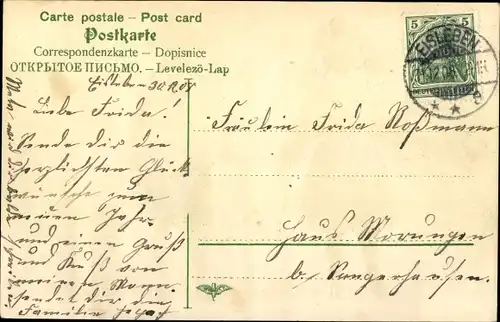 Carte postale – Post card
Postkarte
Correspondenzkarte – Dopisnice
ОТКРЫТОЕ ПИСЬМО. – Levelező-Lap
5
EISLEBEN
Eisleben 30.12.
Liebe Frida!
Sende dir die
herzlichsten Glück
wünsche zum
neuen Jahr
und einen Gruß
und Kuß von
meinem Mann.
sendet dir die
Familie
Fräulein Frida Roßmann
Haus Morungen
b/ Sangerhausen.